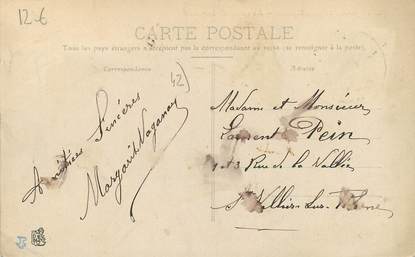 12-6
CARTE POSTALE
Tous les pays étrangers n'acceptent pas la correspondance au recto (se renseigner à la poste)
Correspondance
Adresse
42
Amitiés Sincères
Madame et Monsieur
Laurent Pein
1 et 3 Rue de la Vallée
St Vallier sur Rhône